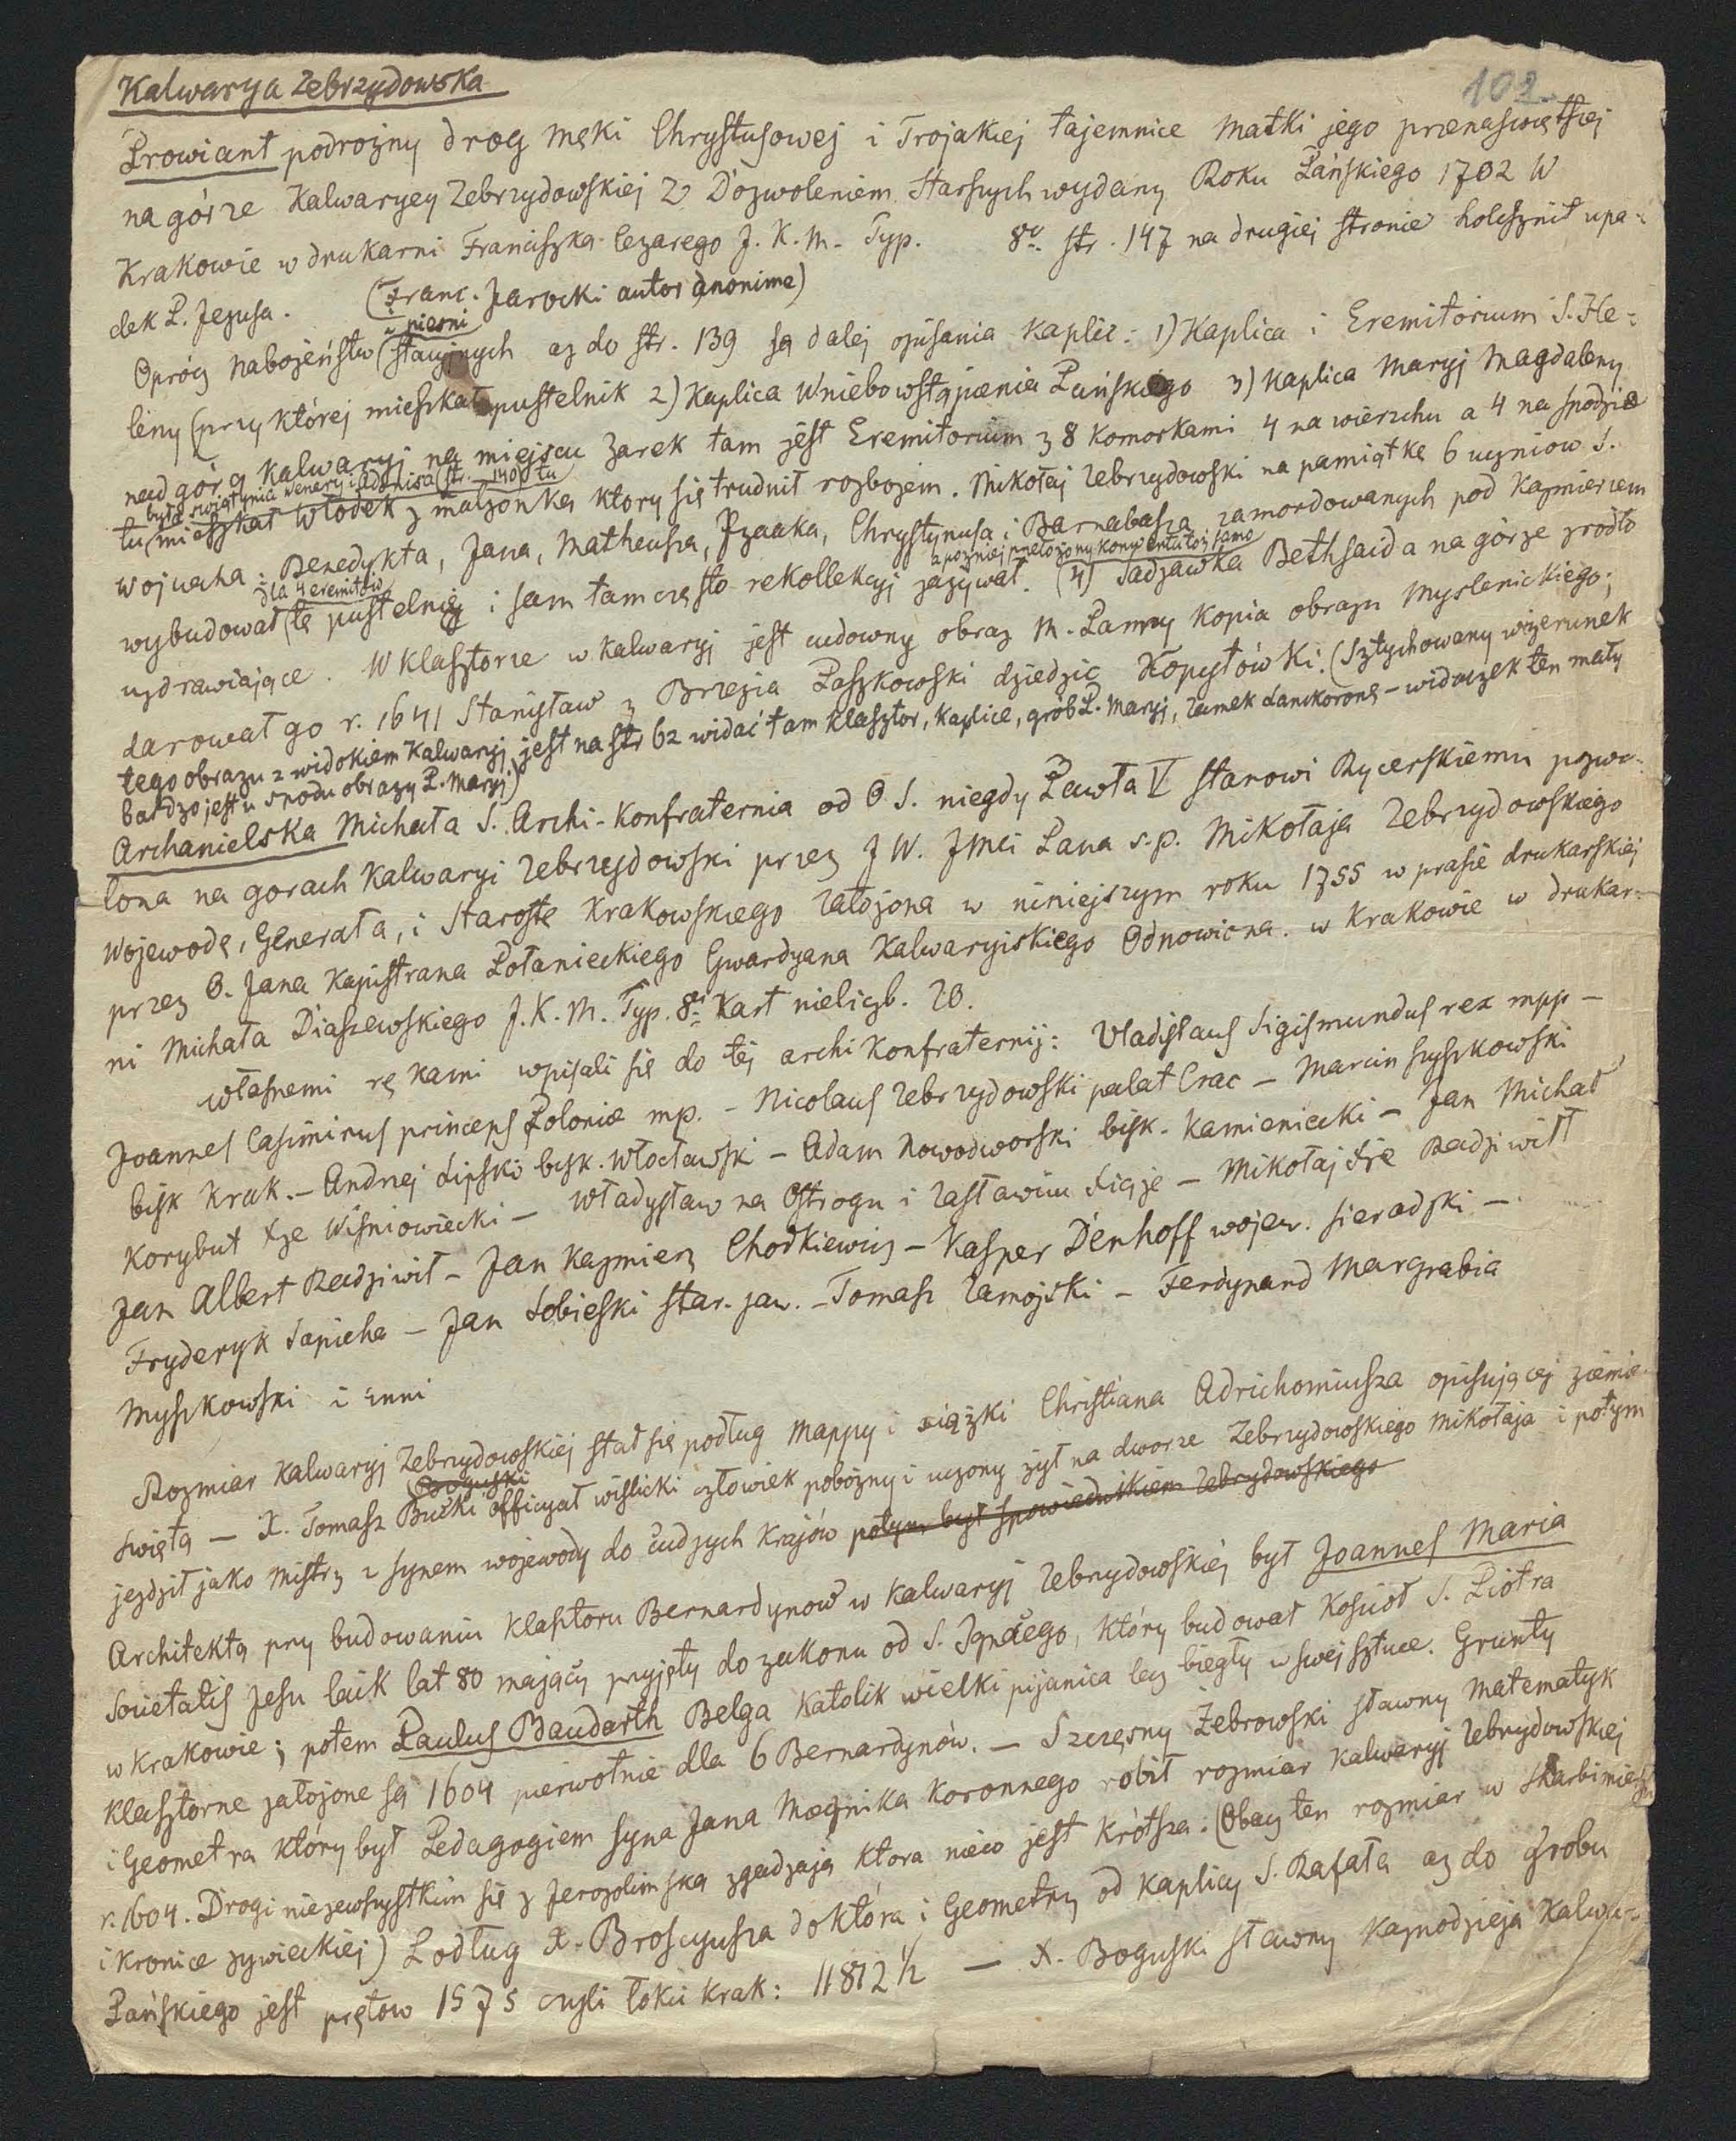 Kalwarya Zebrzydowska
102
Prowiant podrożny drog męki Chrystusowej i Trojakiej tajemnice Matki jego przenaswiętszej
na górze Kalwaryey Zebrzydowskiej Z Dozwoleniem Starszych wydany Roku Pańskiego 1702 W
Krakowie w drukarni Franciszka Cezarego J. K. M. Typ. 8vo str. 147 na drugiej stronie upa-
dek P. Jezusa. (Franc. Jarocki autor anonime)
i piesni
Oprócz Nabożeństw (stacyjnych aż do str. 139 są dalej opisania Kaplic: 1) Kaplica i Eremitorium S. He-
leny (przy której mieszkał pustelnik 2) Kaplica Wniebowstąpienia Pańskiego 3) Kaplica Maryj Magdaleny
nad górą Kalwaryj na miejscu Zarek tam jest Eremitorium z 8 Komorkami 4 na wierzchu a 4 na spodzie
była swiątynia Wenery i Adonisa (str. 140) tu
tu (mieszkał Włodek z małżonką ktory się trudnił rozbojem. Mikołaj Zebrzydowski na pamiątkę 6 uczniow S.
Wojciecha: Benedykta, Jana, Matheusza, Izaaka, Chrystynusa i Barnabasza zamordowanych pod Kazmierzem
dla 4 eremitów
a pozniej przełożony konwentu toż samo
wybudował (tę pustelnię i sam tam często rekollekcyj zażywał. (4) Sadzawka Bethsaida na górze zrodło
uzdrawiające. W klasztorze w Kalwaryj jest cudowny obraz M. Panny Kopia obrazu Myslenickiego;
darował go r. 1641 Stanisław z Brzezia Paszkowski dziedzic Kopytówki. (Sztychowany wizerunek
tego obrazu z widokiem Kalwaryj jest na str 62 widać tam klasztor, kaplice, grób P. Maryj, zamek Lanckoronę - widoczek ten mały
bardzo jest u spodu obrazu P. Maryj)
Archanielska Michała S. Archi-Konfraternia od O S. niegdy Pawła V stanowi Rycerskiemu pozwo-
lona na gorach Kalwaryi Zebrzydowski przez J W. Jmci Pana s.p. Mikołaja Zebrzydowskiego
Wojewodę, Generała, i Starostę Krakowskiego Założona w niniejszym roku 1755 w prasie drukarskiej
przez O. Jana Kapistrana Połanieckiego Gwardyana Kalwaryiskiego Odnowiona. w Krakowie w drukar-
ni Michała Diaszewskiego J. K. M. Typ. 8ei Kart nieliczb. 20.
własnemi rękami wpisali się do tej archi Konfraternij: Vladislaus Sigismundus rex mpp -
Joannes Casimirus princeps Poloniæ mp. - Nicolaus Zebrzydowski palat Crac - Marcin Szyszkowski
bisk Krak. - Andrzej Lipski bisk. Włocławski - Adam Nowodworski bisk. Kamieniecki - Jan Michał
Korybut Xże Wiśniowiecki - Władysław na Ostrogu i Zasławiu - Mikołaj Xże Radziwiłł
Jan Albert Radziwił - Jan Kazmierz Chodkiewicz - Kasper Dënhoff wojew. sieradzki -
Fryderyk Sapieha - Jan Sobieski star. jaw. - Tomasz Zamojski - Ferdynand Margrabia
Myszkowski i inni
Rozmiar Kalwaryj Zebrzydowskiej stał się podług Mappy i xiążki Christiana Adrichomiusza opisującej ziemie
Boguski
swiętą - X. Tomasz Bucki officyał wislicki człowiek pobożny i uczony żył na dworze Zebrzydowskiego Mikołaja i potym
jezdził jako Mistrz z synem wojewody do cudzych Krajów potym był Spowiednikiem Zebrzydowskiego
Architektą przy budowaniu Klasztoru Bernardynow w Kalwaryj Zebrzydowskiej był Joannes Maria
Societatis Jesu laik lat 80 mający przyjęty do zakonu od S. Ignacego, który budował Kościoł S. Piotra
w Krakowie; potem Paulus Baudarth Belga Katolik wielki pijanica lecz biegły w swej sztuce. Grunty
Klasztorne założone są 1604 pierwotnie dla 6 Bernardynów. - Szczęsny Żebrowski sławny Matematyk
i Geometra który był Pedagogiem syna Jana Mącznika Koronnego robił rozmiar Kalwaryj Zebrzydowskiej
r. 1604. Drogi niezewszystkim się z Jerozolimską zgadzają ktora nieco jest krótsza: (Obacz ten rozmiar w Skarbimierzu
i Kronice żywieckiej) Podług X. Broscyusza doktora i Geometry od Kaplicy S. Rafała aż do Grobu
Pańskiego jest prętow 1575 czyli łokci krak: 11812 1/2 - X. Boguski sławny Kaznodzieja Kalwa-